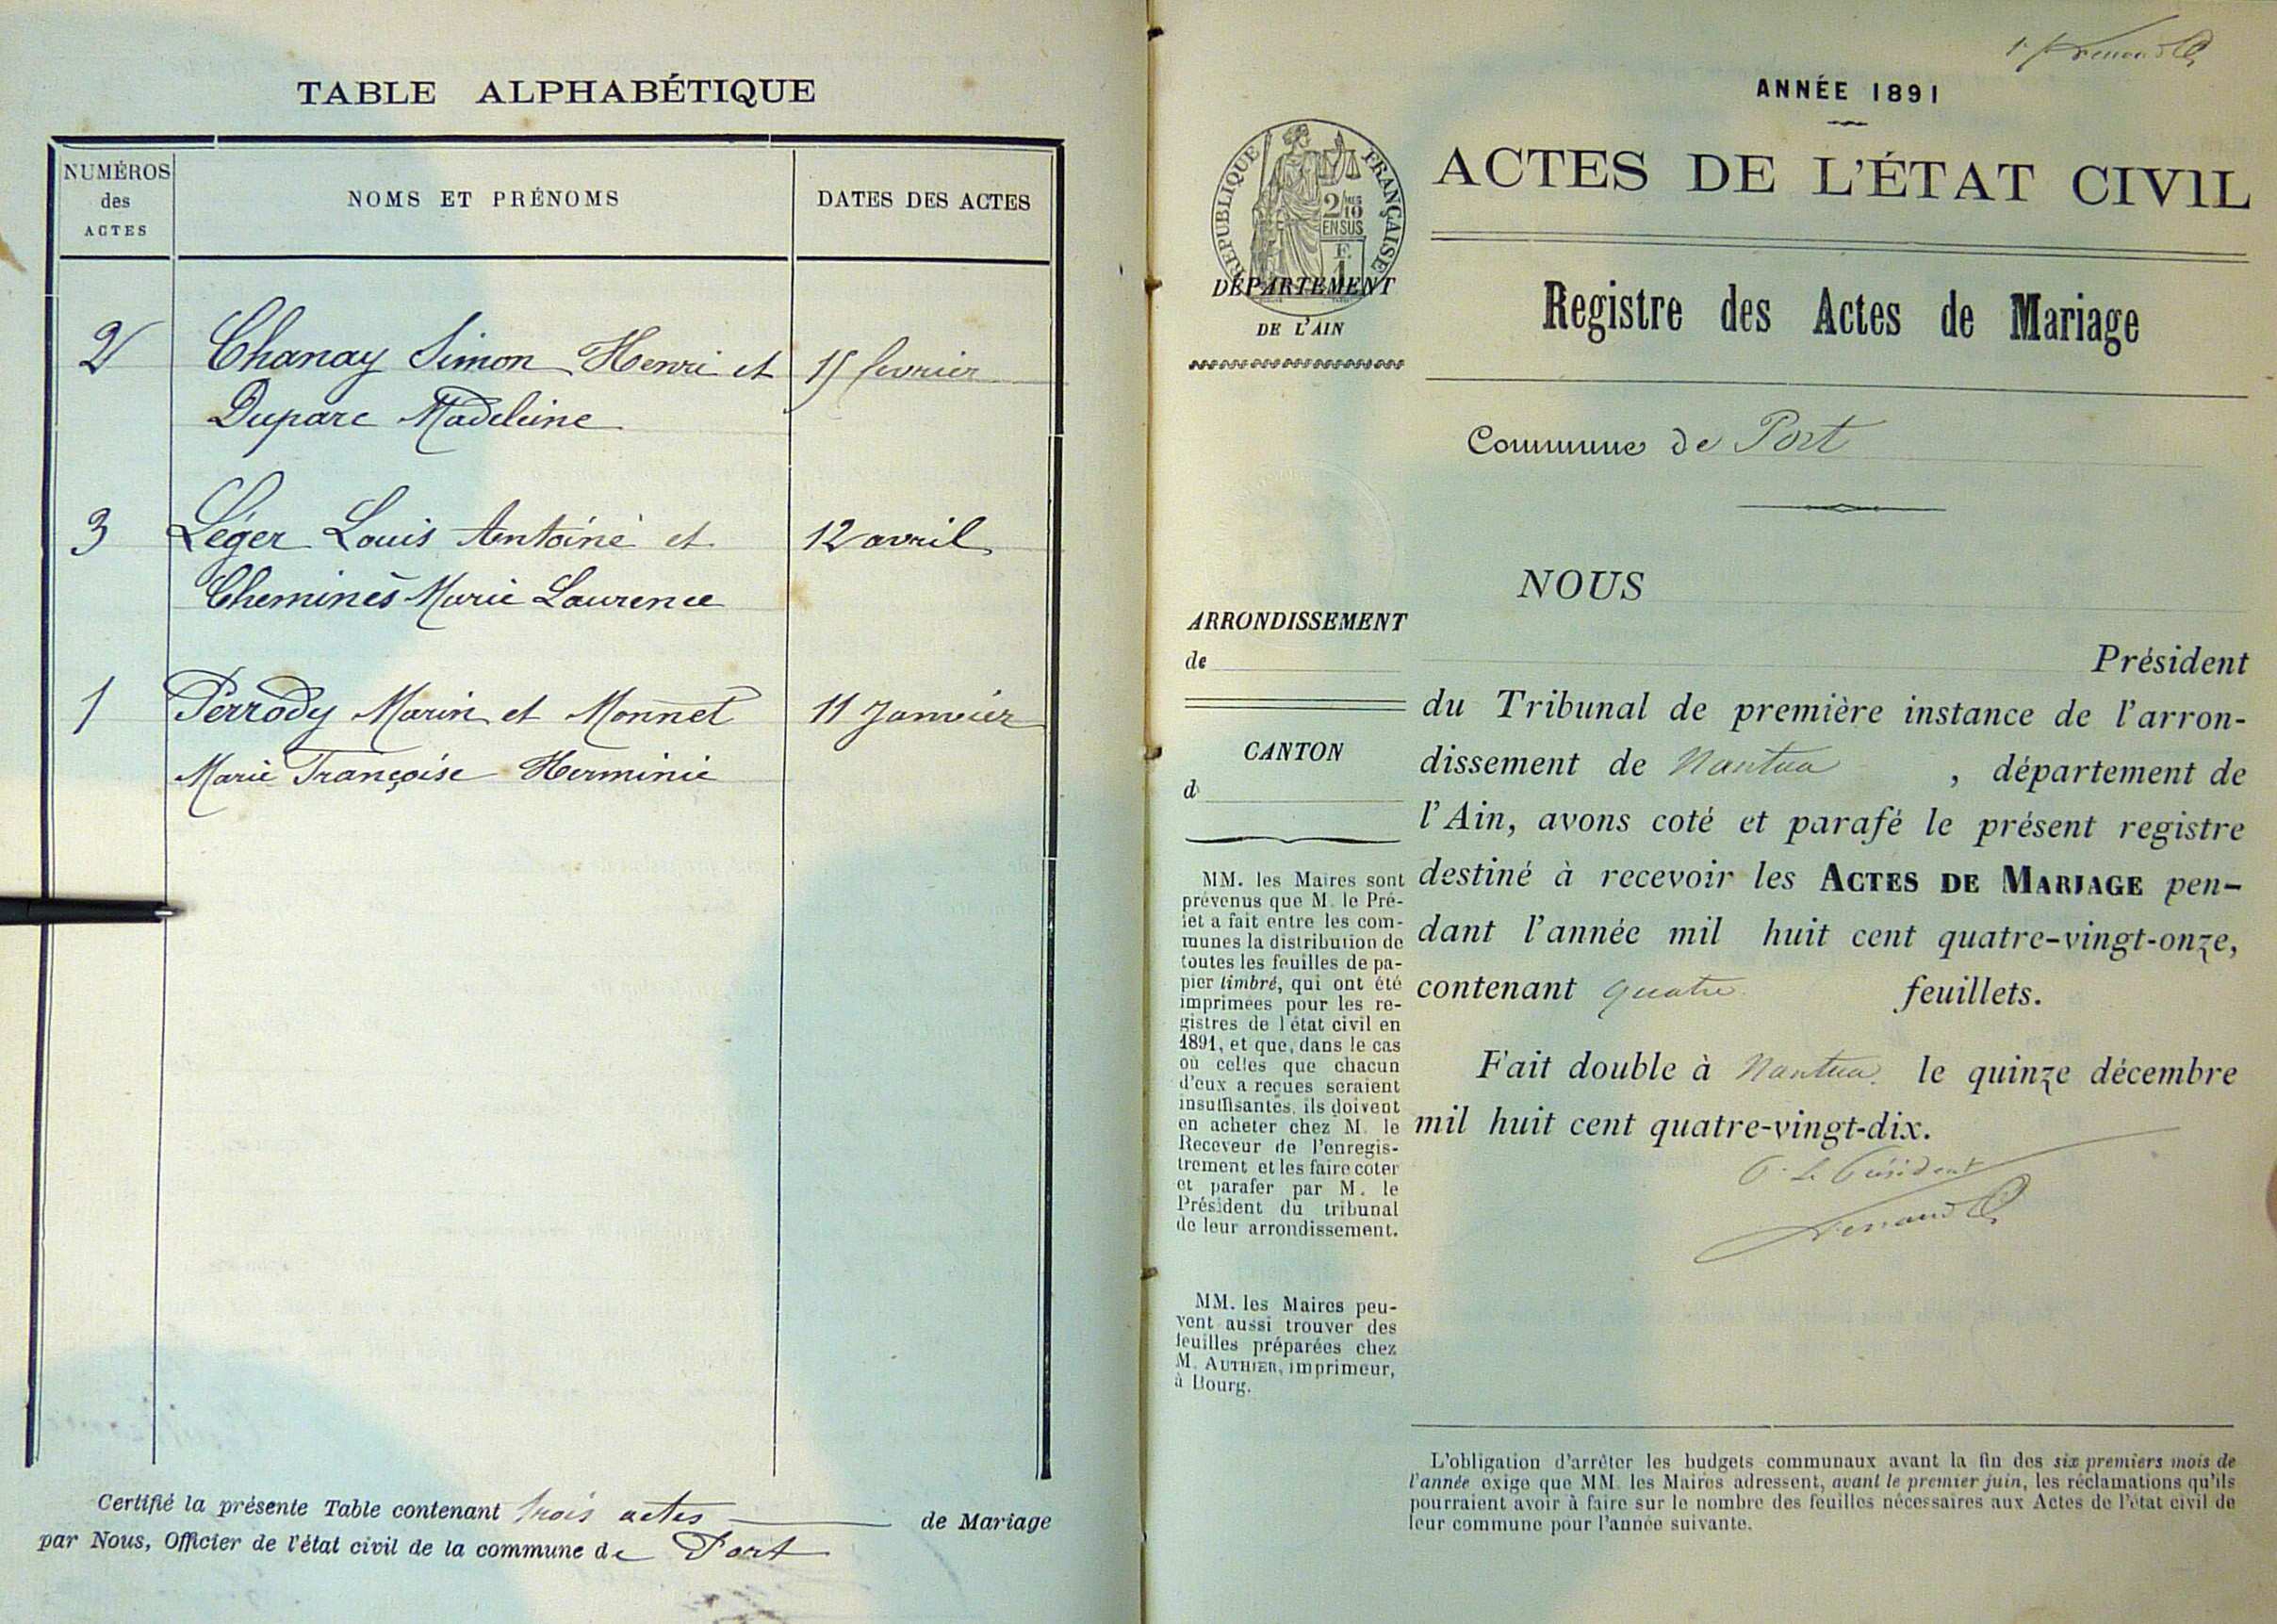 TABLE ALPHABÉTIQUE
NUMÉROS
des
ACTES
NOMS ET PRÉNOMS
DATES DES ACTES
2 Chanay Simon Henri et 15 fevrier
Duparc Madeleine
3 Léger Louis Antoine et 12 avril
Cheminès Marie Laurence
1 Perrody Marin et Monnet 11 Janvier
Marie Françoise Herminie
Certifié la présente Table contenant trois actes de Mariage
par Nous, Officier de l'état civil de la commune de Port
ANNÉE 1891
ACTES DE L'ÉTAT CIVIL
RÉPUBLIQUE FRANÇAISE
2/10
EN SUS
F.
1
DÉPARTEMENT
DE L'AIN
Registre des Actes de Mariage
Commune de Port
ARRONDISSEMENT
de
CANTON
d
MM. les Maires sont
prévenus que M. le Pré-
fet a fait entre les com-
munes la distribution de
toutes les feuilles de pa-
pier timbré, qui ont été
imprimées pour les re-
gistres de l'état civil en
1891, et que, dans le cas
où celles que chacun
d'eux a reçues seraient
insuffisantes, ils doivent
en acheter chez M. le
Receveur de l'enregis-
trement et les faire coter
et parafer par M. le
Président du tribunal
de leur arrondissement.
MM. les Maires peu-
vent aussi trouver des
feuilles préparées chez
M. AUTHIER, imprimeur,
à Bourg.
NOUS
Président
du Tribunal de première instance de l'arron-
dissement de Nantua , département de
l'Ain, avons coté et parafé le présent registre
destiné à recevoir les ACTES DE MARIAGE pen-
dant l'année mil huit cent quatre-vingt-onze,
contenant quatre feuillets.
Fait double à Nantua. le quinze décembre
mil huit cent quatre-vingt-dix.
P. Le Président
L'obligation d'arrêter les budgets communaux avant la fin des six premiers mois de
l'année exige que MM. les Maires adressent, avant le premier juin, les réclamations qu'ils
pourraient avoir à faire sur le nombre des feuilles nécessaires aux Actes de l'état civil de
leur commune pour l'année suivante.